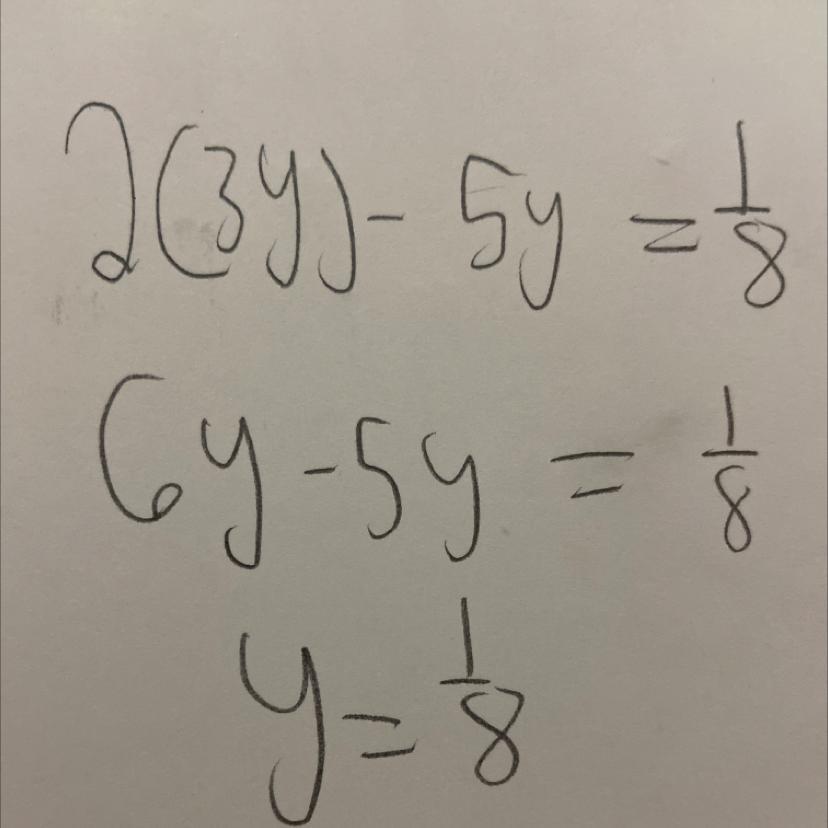 2(3y) - 5y = 1/8
6y - 5y = 1/8
y = 1/8